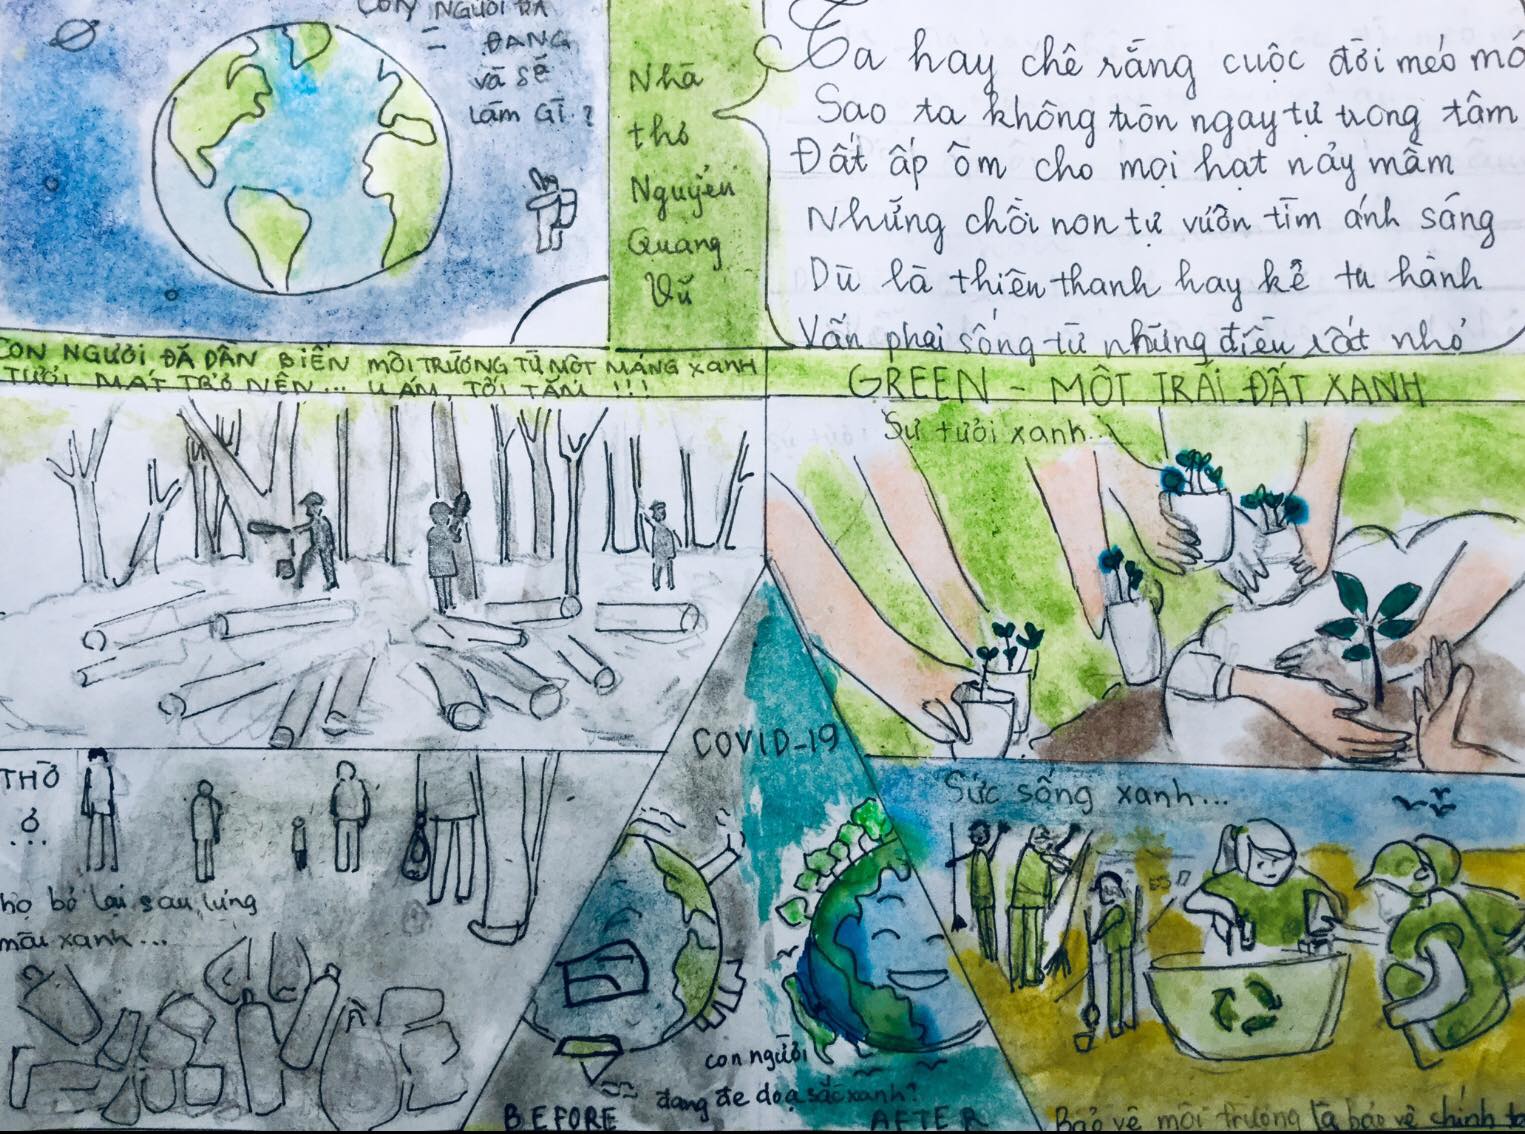 CON NGƯỜI ĐÃ
ĐANG
và sẽ
làm Gì?
Nhà
thơ
Nguyễn
Quang
Vũ
Ta hay chê rằng cuộc đời méo mó
Sao ta không tròn ngay tự trong tâm
Đất ấp ôm cho mọi hạt nảy mầm
Những chồi non tự vươn tìm ánh sáng
Dù là thiên thanh hay kẻ tu hành
Vẫn phải sống từ những điều rất nhỏ
CON NGƯỜI ĐÃ DẦN BIẾN MÔI TRƯỜNG TỪ MỘT MẢNG XANH
TƯƠI MÁT TRỞ NÊN... U ÁM, TỐI TĂM !!!
GREEN - MỘT TRÁI ĐẤT XANH
Sự tươi xanh...
COVID-19
THỜ
Ơ
...
họ bỏ lại sau lưng
màu xanh...
Sức sống xanh...
con người
đang đe doạ sắc xanh?
BEFORE
AFTER
Bảo vệ môi trường là bảo vệ chính ta